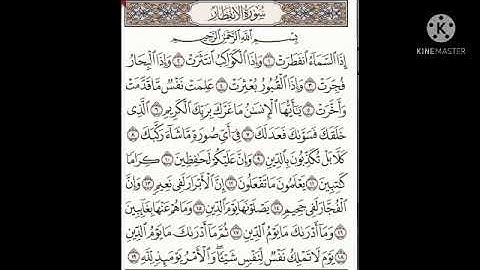 سُورَةُ الانفِطَار
بِسْمِ اللَّهِ الرَّحْمَٰنِ الرَّحِيمِ
إِذَا السَّمَاءُ انفَطَرَتْ ١ وَإِذَا الْكَوَاكِبُ انتَثَرَتْ ٢ وَإِذَا الْبِحَارُ
فُجِّرَتْ ٣ وَإِذَا الْقُبُورُ بُعْثِرَتْ ٤ عَلِمَتْ نَفْسٌ مَّا قَدَّمَتْ
وَأَخَّرَتْ ٥ يَٰأَيُّهَا الْإِنسَٰنُ مَا غَرَّكَ بِرَبِّكَ الْكَرِيمِ ٦ الَّذِى
خَلَقَكَ فَسَوَّىٰكَ فَعَدَلَكَ ٧ فِىٓ أَىِّ صُورَةٍ مَّا شَآءَ رَكَّبَكَ ٨
كَلَّا بَلْ تُكَذِّبُونَ بِالدِّينِ ٩ وَإِنَّ عَلَيْكُمْ لَحَٰفِظِينَ ١٠ كِرَامًا
كَٰتِبِينَ ١١ يَعْلَمُونَ مَا تَفْعَلُونَ ١٢ إِنَّ الْأَبْرَارَ لَفِى نَعِيمٍ ١٣ وَإِنَّ
الْفُجَّارَ لَفِى جَحِيمٍ ١٤ يَصْلَوْنَهَا يَوْمَ الدِّينِ ١٥ وَمَا هُمْ عَنْهَا بِغَآئِبِينَ
١٦ وَمَآ أَدْرَىٰكَ مَا يَوْمُ الدِّينِ ١٧ ثُمَّ مَآ أَدْرَىٰكَ مَا يَوْمُ الدِّينِ
١٨ يَوْمَ لَا تَمْلِكُ نَفْسٌ لِّنَفْسٍ شَيْـًٔا ۖ وَالْأَمْرُ يَوْمَئِذٍ لِّلَّهِ ١٩
KINEMASTER